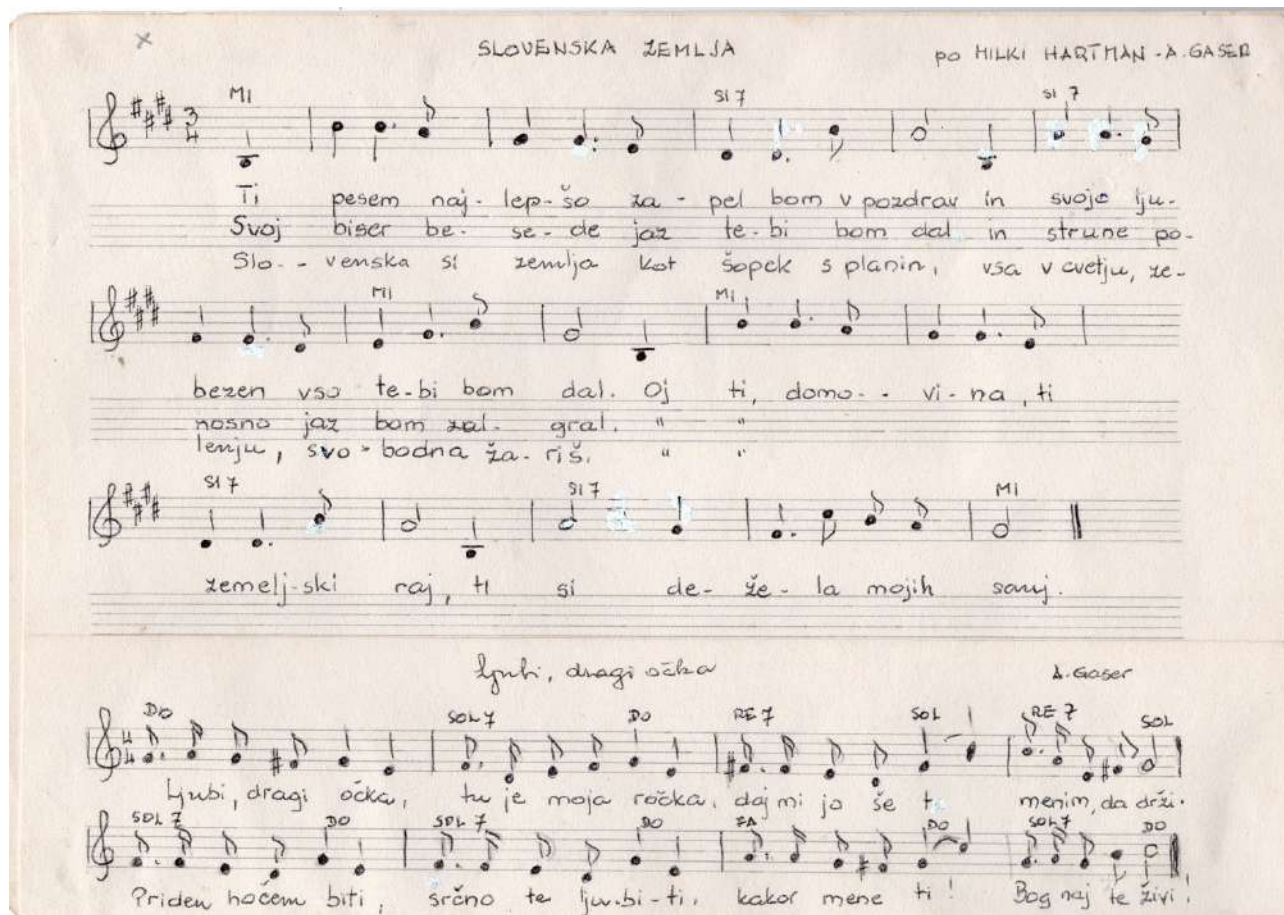 SLOVENSKA ZEMLJA
po MILKI HARTMAN - A. GASER
MI SI 7 SI 7
Ti pesem naj-lep-šo za-pel bom v pozdrav in svojo lju-
Svoj biser be-se-de jaz te-bi bom dal in strune po-
Slo--venska si zemlja kot šopek s planin, vsa v cvetju, ze-
MI MI
bezen vso te-bi bom dal. Oj ti, domo--vi-na, ti
nosno jaz bom zai-gral. " "
lenju, svo-bodna ža-riš. " "
SI 7 SI 7 MI
zemelj-ski raj, ti si de-že-la mojih sanj.
ljubi, dragi očka
A. Gaser
DO SOL 7 DO RE 7 SOL RE 7 SOL
Ljubi, dragi očka, tu je moja ročka, daj mi jo še menim, da drži.
SOL 7 DO SOL 7 DO FA DO SOL 7 DO
Priden hočem biti, srčno te lju-bi-ti, kakor mene ti! Bog naj te živi!